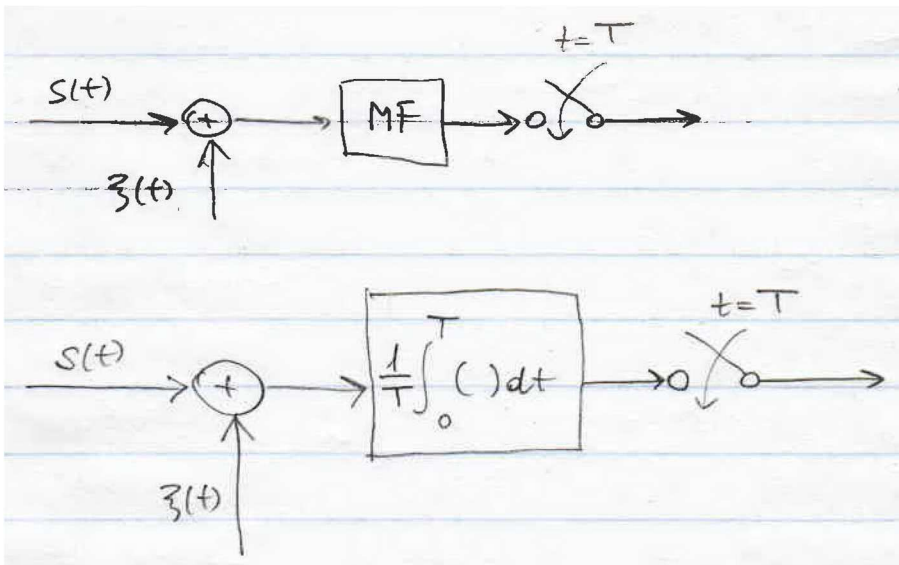 t=T
S(t)
+
MF
ξ(t)
t=T
S(t)
+
1/T ∫₀ᵀ ( ) dt
ξ(t)